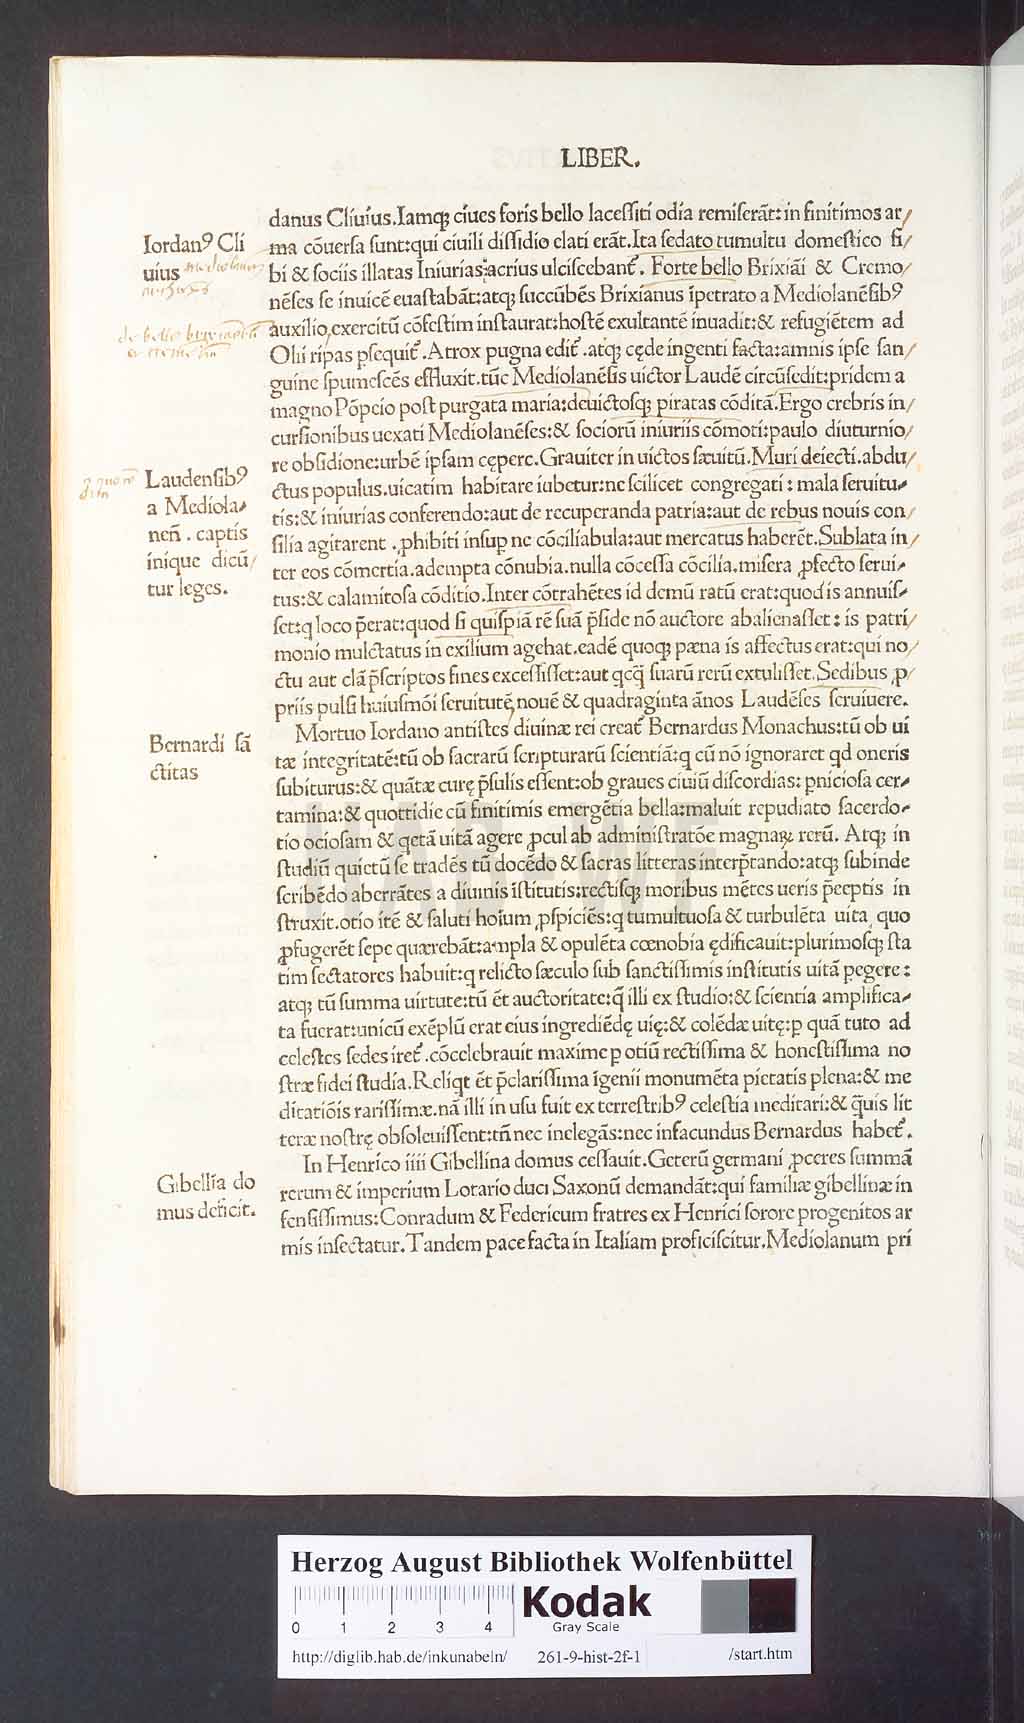 LIBER.
danus Cliuius. Iamq; ciues foris bello lacessiti odia remiserāt: in finitimos ar/
ma cōuersa sunt: qui ciuili dissidio elati erāt. Ita sedato tumultu domestico si/
bi & sociis illatas Iniurias: acrius ulciscebant᷑. Forte bello Brixiāi & Cremo/
nēses se inuicē euastabāt: atq; succūbēs Brixianus īpetrato a Mediolanēsibꝰ
auxilio, exercitū cōfestim instaurat: hostē exultantē inuadit: & refugiētem ad
Olii ripas ꝑsequit᷑. Atrox pugna edit᷑. atq; cęde ingenti facta: amnis ipse san/
guine spumescēs effluxit. tūc Mediolanēsis uictor Laudē circūsedit: pridem a
magno Pōpeio post purgata maria: deuictosq; piratas cōditā. Ergo crebris in/
cursionibus uexati Mediolanēses: & sociorū iniuriis cōmoti: paulo diuturnio/
re obsidione: urbē ipsam cępere. Grauiter in uictos sæuitū. Muri deiecti. abdu/
ctus populus. uicatim habitare iubetur: ne scilicet congregati: mala seruitu-
tis: & iniurias conferendo: aut de recuperanda patria: aut de rebus nouis con/
silia agitarent. ꝓhibiti insuꝑ ne cōciliabula: aut mercatus haberēt. Sublata in/
ter eos cōmertia. adempta cōnubia. nulla cōcessa cōcilia. misera ꝓfecto serui-
tus: & calamitosa cōditio. Inter cōtrahētes id demū ratū erat: quod is annuis-
set: q loco p̄erat: quod si quispiā rē suā p̄side nō auctore abalienasset: is patri/
monio mulctatus in exilium agebat. eadē quoq; pæna is affectus erat: qui no/
ctu aut clā p̄scriptos fines excessisset: aut qcq̄ suarū rerū extulisset. Sedibus ꝓ/
priis pulsi huiusmōi seruitutē, nouē & quadraginta ānos Laudēses seruiuere.
Mortuo Iordano antistes diuinæ rei creat᷑ Bernardus Monachus: tū ob ui
tæ integritatē: tū ob sacrarū scripturarū scientiā: q cū nō ignoraret qd oneris
subiturus: & quātæ curę p̄sulis essent: ob graues ciuiū discordias: ꝑniciosa cer-
tamina: & quottidie cū finitimis emergētia bella: maluit repudiato sacerdo-
tio ociosam & qetā uitā agere ꝓcul ab administratōe magnaꝝ rerū. Atq; in
studiū quietū se tradēs tū docēdo & sacras litteras interp̄tando: atq; subinde
scribēdo aberrātes a diuinis īstitutis: rectisq; moribus mētes ueris p̄ceptis in
struxit. otio itē & saluti hoīum ꝓspiciēs: q tumultuosa & turbulēta uita quo
ꝓfugerēt sepe quærebāt: ampla & opulēta cœnobia ędificauit: plurimosq; sta
tim sectatores habuit: q relicto sæculo sub sanctissimis institutis uitā ꝑegere:
atq; tū summa uirtute: tū ēt auctoritate: q̄ illi ex studio: & scientia amplifica-
ta fuerat: unicū exēplū erat eius ingrediēdę uię: & colēdæ uitę: ꝑ quā tuto ad
celestes sedes iret᷑. cōcelebrauit maxime ꝑ otiū rectissima & honestissima no
stræ fidei studia. Reliqt ēt p̄clarissima īgenii monumēta pietatis plena: & me
ditatiōis rarissimæ. nā illi in usu fuit ex terrestribꝰ celestia meditari: & q̄uis lit
teræ nostrę obsoleuissent: tn̄ nec inelegās: nec infacundus Bernardus habet᷑.
In Henrico iiii Gibellina domus cessauit. Ceterū germani ꝓceres summā
rerum & imperium Lotario duci Saxonū demandāt: qui familiæ gibellinæ in
fensissimus: Conradum & Federicum fratres ex Henrici sorore progenitos ar
mis insectatur. Tandem pace facta in Italiam proficiscitur. Mediolanum pri
Iordanꝰ Cli
uius
Laudensibꝰ
a Mediola-
nen̄. captis
inique dicū/
tur leges.
Bernardi sā
ctitas
Gibellīa do
mus deficit.
HAB-WF
Herzog August Bibliothek Wolfenbüttel
0 1 2 3 4
Kodak
Gray Scale
http://diglib.hab.de/inkunabeln/ 261-9-hist-2f-1 /start.htm